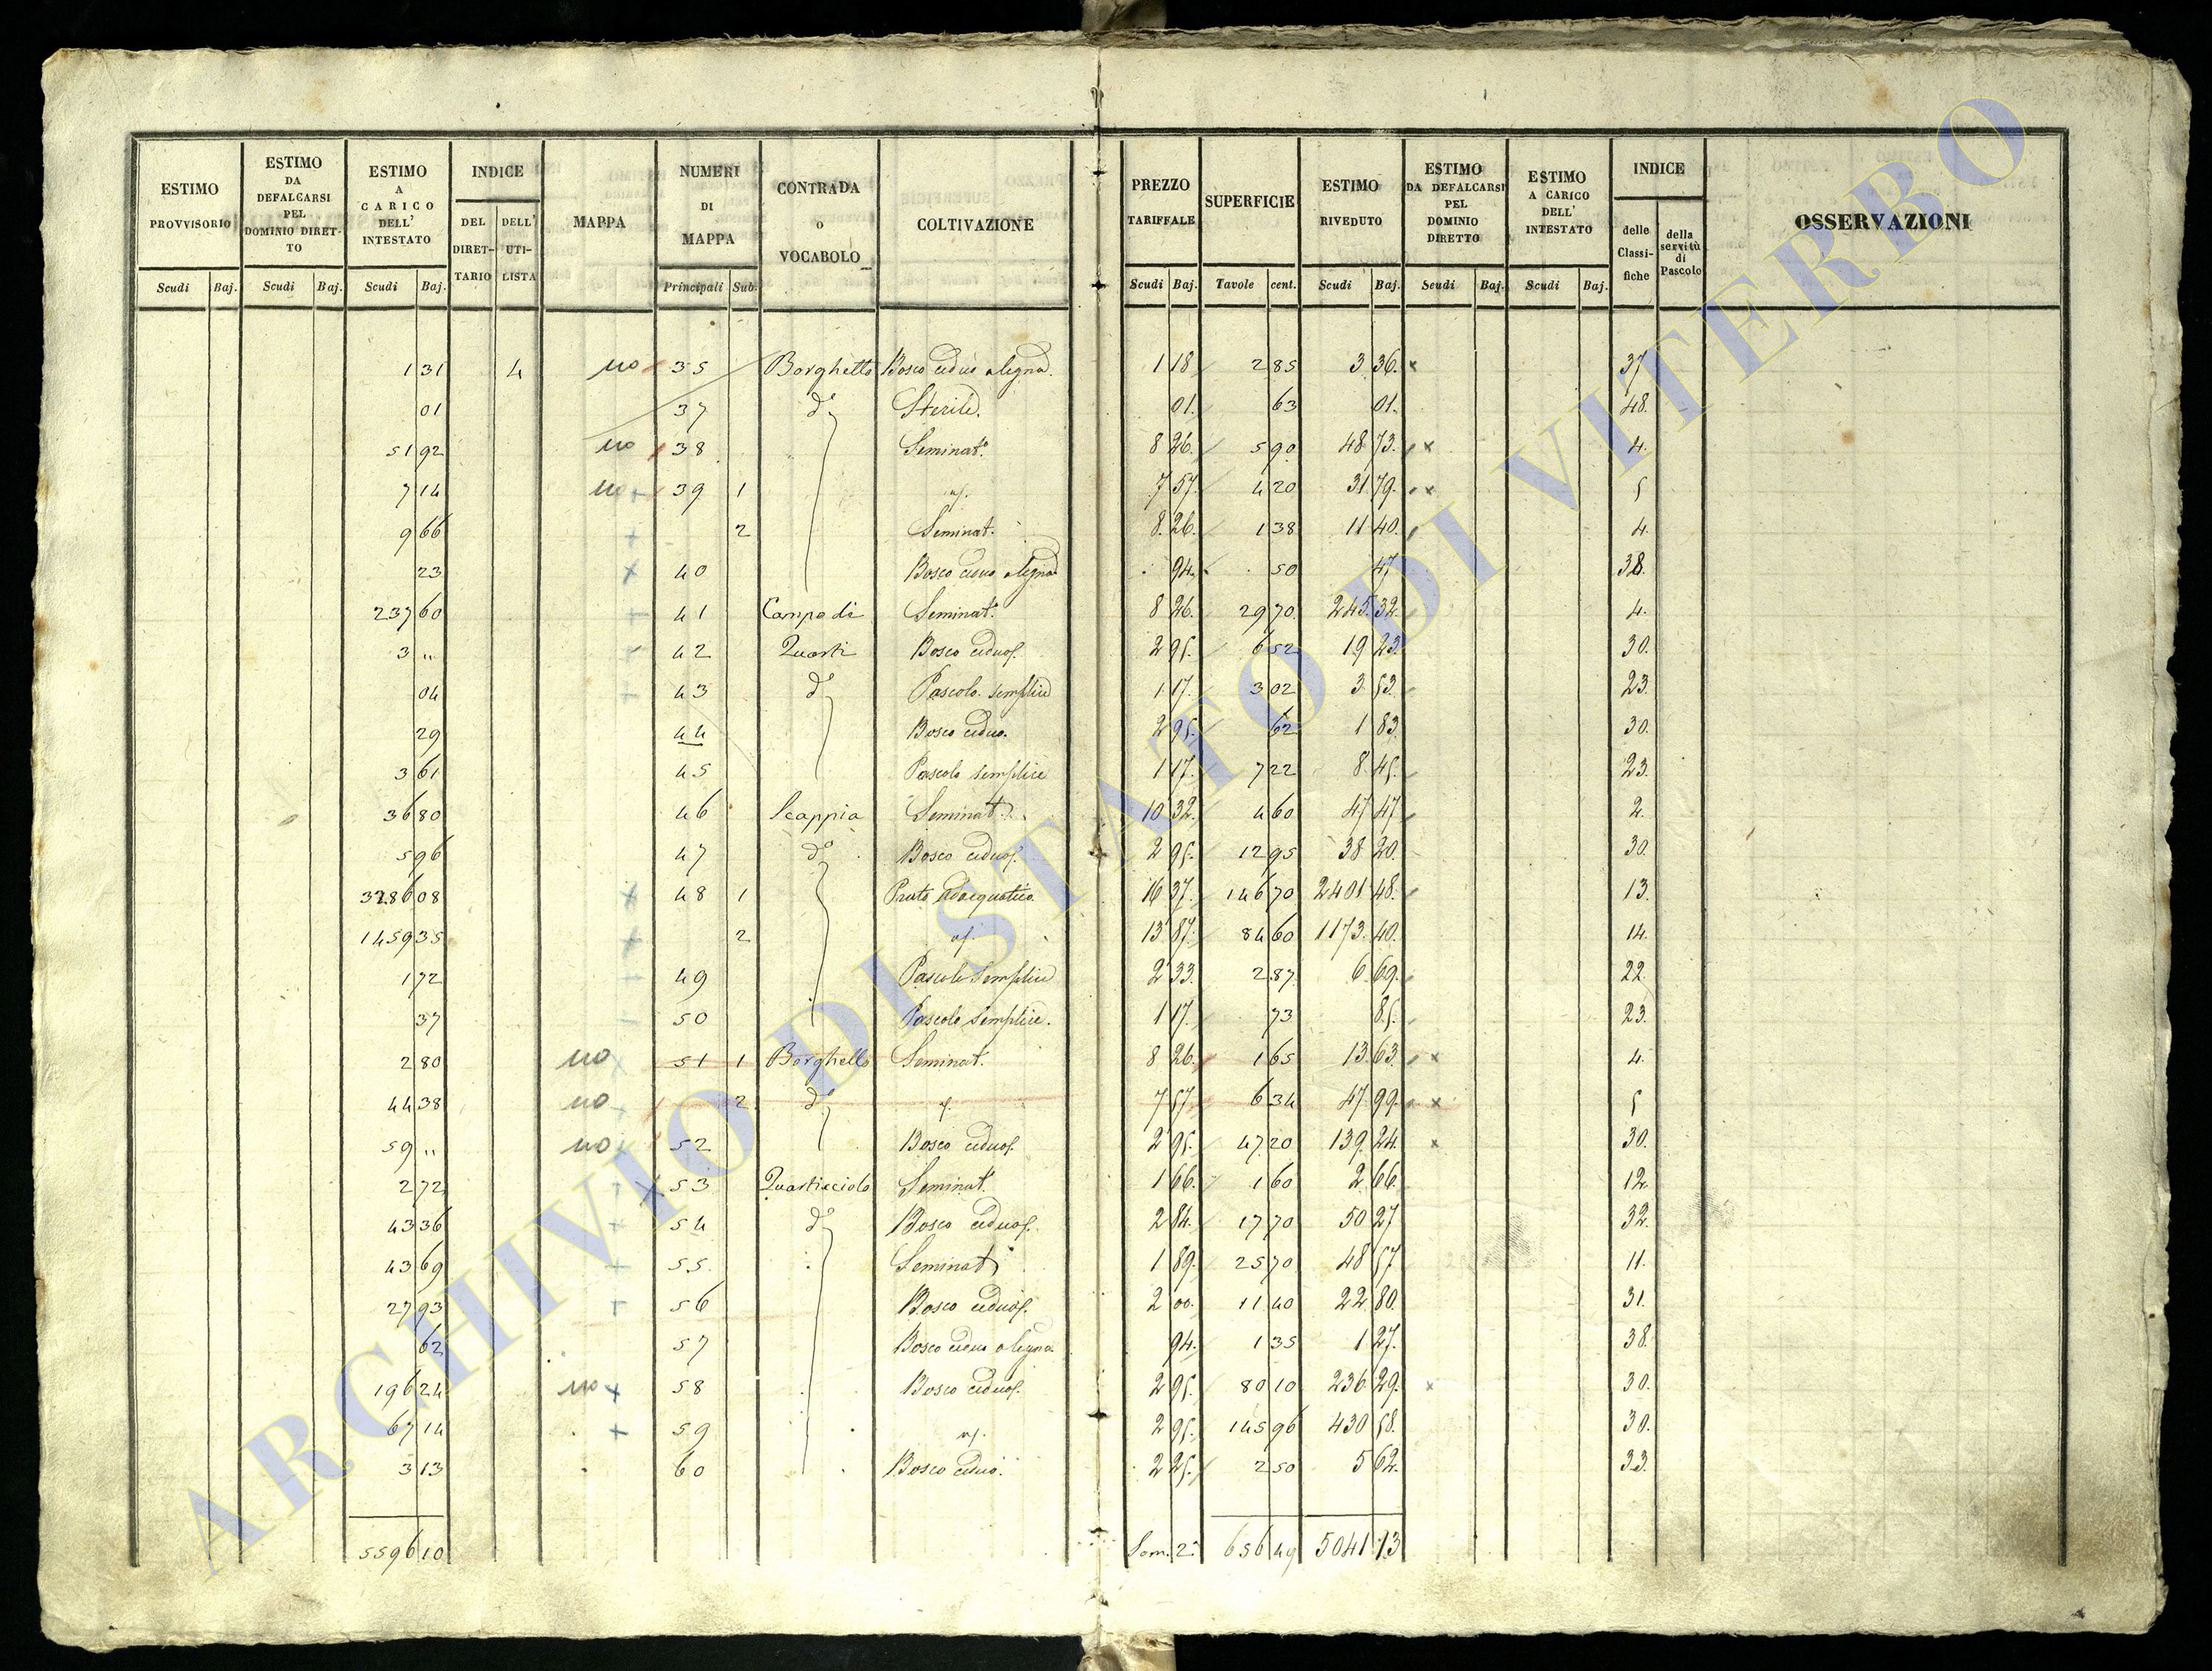 ESTIMO PROVVISORIO Scudi Baj.
ESTIMO DA DEFALCARSI PEL DOMINIO DIRETTO Scudi Baj.
ESTIMO A CARICO DELL' INTESTATO Scudi Baj.
INDICE DEL DIRETTARIO DELL' UTILISTA
MAPPA
NUMERI DI MAPPA Principali Sub.
CONTRADA o VOCABOLO
COLTIVAZIONE
PREZZO TARIFFALE Scudi Baj.
SUPERFICIE Tavole cent.
ESTIMO RIVEDUTO Scudi Baj.
ESTIMO DA DEFALCARSI PEL DOMINIO DIRETTO Scudi Baj.
ESTIMO A CARICO DELL' INTESTATO Scudi Baj.
INDICE delle Classifiche della servitù di Pascolo
OSSERVAZIONI
1 31 4 no 35 Borghetto Bosco ceduo a legna 1 18 2 85 3 36 x 37
01 37 d° Sterile 01 63 01 48
51 92 no 38 Seminat° 8 26 5 90 48 73 x 4
7 14 no + 39 1 7 57 4 20 31 79 x 5
9 66 + 2 Seminat. 8 26 1 38 11 40 4
23 x 40 Bosco ceduo a legna 94 50 47 38
237 60 41 Campo di Seminat° 8 26 29 70 245 32 4
3 " 42 Quarti Bosco ceduo f. 2 95 6 52 19 23 30
04 43 d° Pascolo semplice 1 17 3 02 3 53 23
29 44 Bosco ceduo 2 95 62 1 83 30
3 61 45 Pascolo semplice 1 17 7 22 8 45 23
36 80 46 Scappia Seminat° 10 32 4 60 47 47 2
5 96 47 d° Bosco ceduo f. 2 95 12 95 38 20 30
3286 08 x 48 1 Prato adacquativo 16 37 146 70 2401 48 13
1459 35 + 2 13 87 84 60 1173 40 14
1 72 49 Pascolo semplice 2 33 2 87 6 69 22
37 50 Pascolo semplice 1 17 73 85 23
2 80 no 51 1 Borghetto Seminat. 8 26 1 65 13 63 x 4
44 38 no 2 d° 7 57 6 34 47 99 x 5
59 " no 52 Bosco ceduo f. 2 95 47 20 139 24 x 30
2 72 53 Quarticciolo Seminat° 1 66 1 60 2 66 12
43 36 + 54 d° Bosco ceduo f. 2 84 17 70 50 27 32
43 69 + 55 Seminat° 1 89 25 70 48 57 11
27 93 + 56 Bosco ceduo f. 2 00 11 40 22 80 31
62 57 Bosco ceduo a legna 94 1 35 1 27 38
196 24 no + 58 Bosco ceduo f. 2 95 80 10 236 29 x 30
67 14 + 59 2 95 145 96 430 58 30
3 13 60 Bosco ceduo 2 25 2 50 5 62 33
5596 10 Som. 2ª 656 49 5041 13
ARCHIVIO DI STATO DI VITERBO